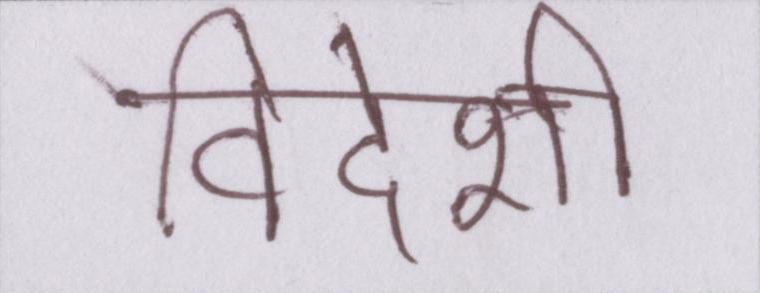 विदेशी